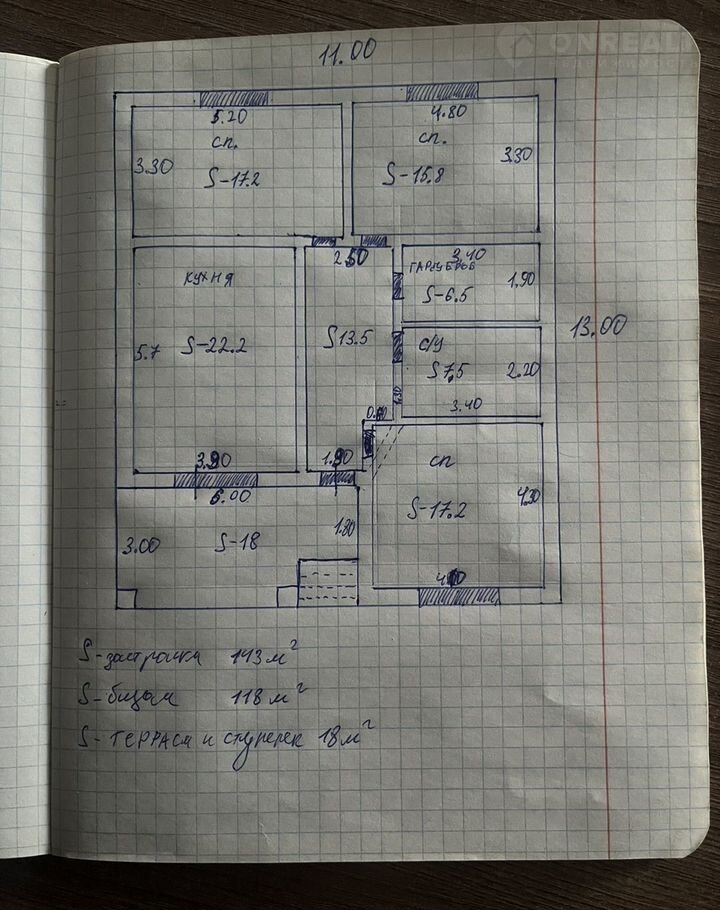 ONREALT
11.00
5.20
4.80
сп.
сп.
3.30
3.30
S-17.2
S-15.8
2.50
3.40
кухня
ГАРДЕРОБ
1.90
S-6.5
13.00
5.7
S-22.2
S 13.5
с/у
S 7,5
2.20
1.30
3.40
3.90
1.90
сп
6.00
4.30
S-17.2
1.80
3.00
S-18
S-застройки 143 м²
S-общая 118 м²
S-ТЕРРАСЫ и ступенек 18 м²